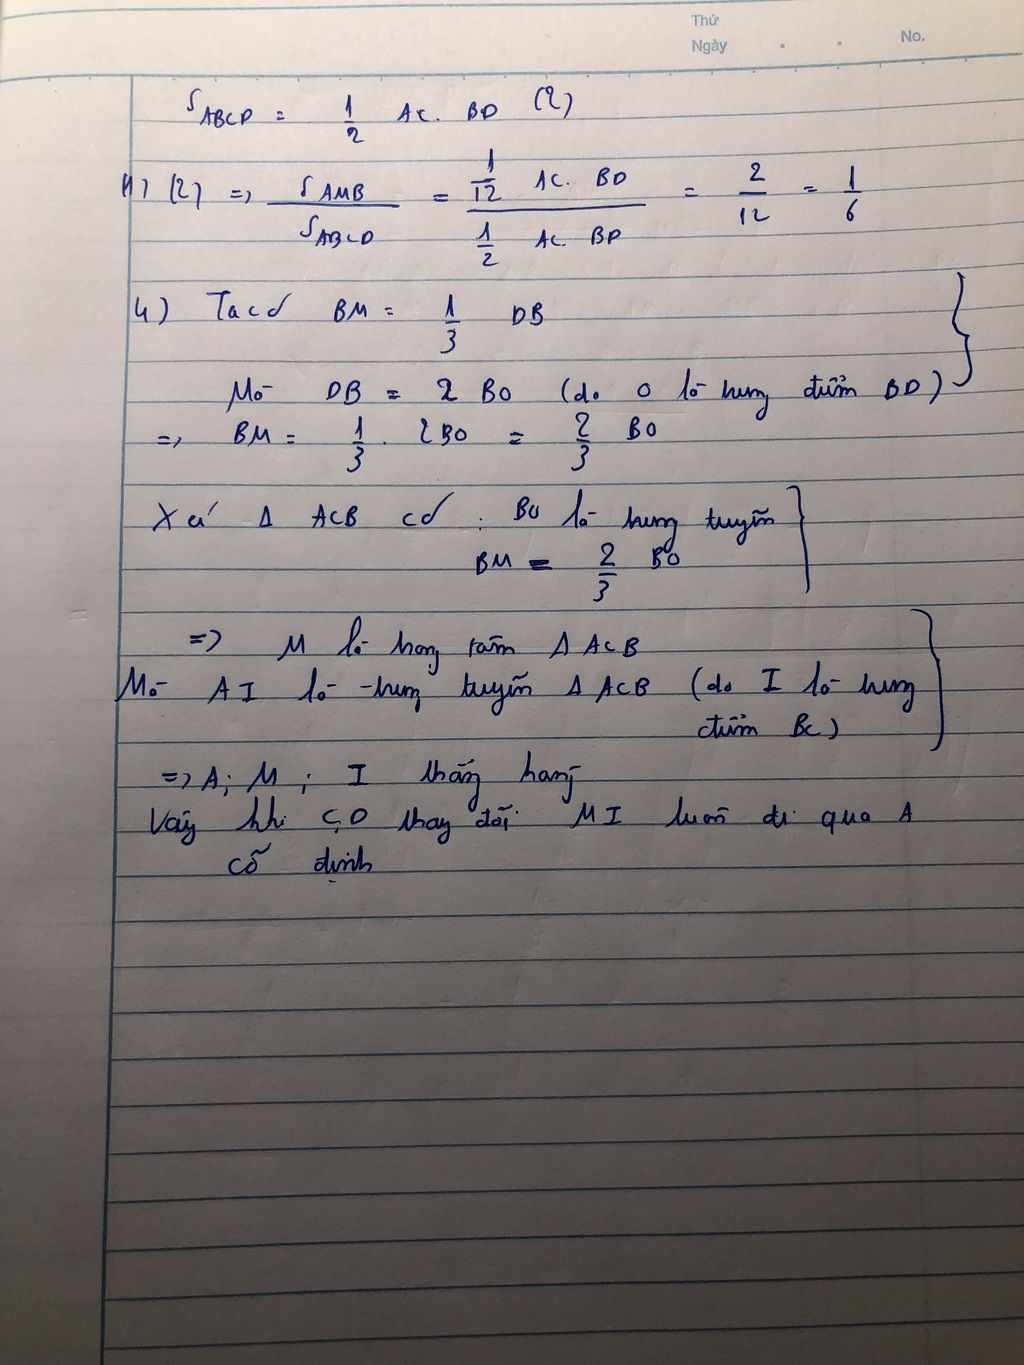 Thứ
Ngày . . No.
S_ABCD = 1/2 AC. BD (2)
(1) (2) => S_AMB / S_ABCD = (1/12 AC. BD) / (1/2 AC. BD) = 2/12 = 1/6
4) Ta có BM = 1/3 DB
Mà DB = 2 BO (do O là trung điểm BD)
=> BM = 1/3 . 2BO = 2/3 BO
Xét Δ ACB có : BO là trung tuyến
BM = 2/3 BO
=> M là trọng tâm Δ ACB
Mà AI là trung tuyến Δ ACB (do I là trung
điểm BC)
=> A; M; I thẳng hàng
Vậy khi C, D thay đổi MI luôn đi qua A
cố định